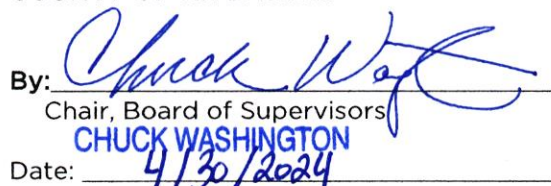 By: Chuck Wa
Chair, Board of Supervisors
CHUCK WASHINGTON
Date: 4/30/2024